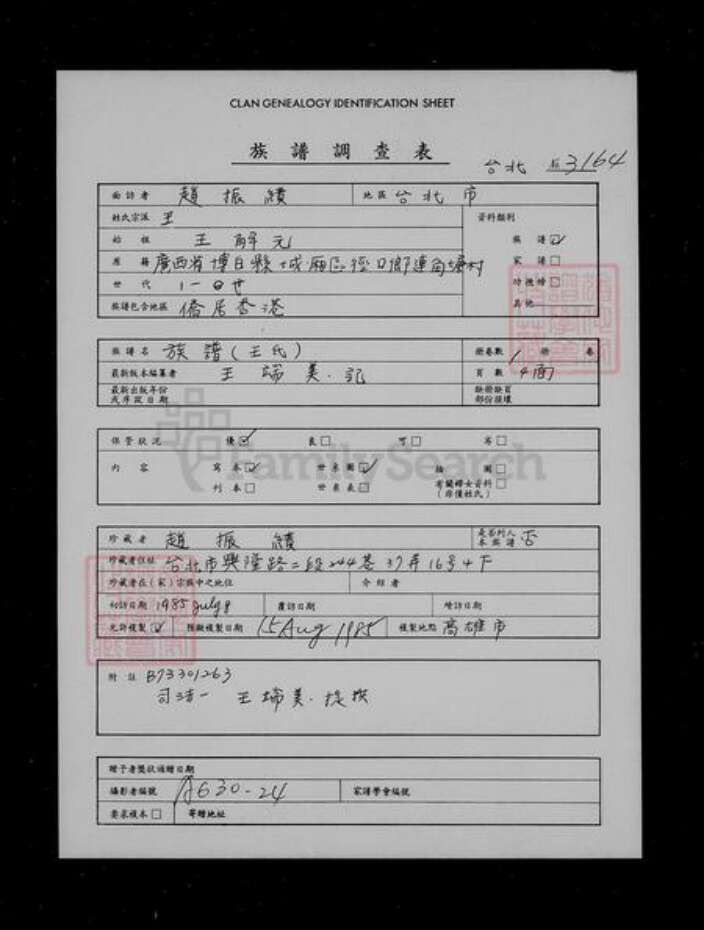 CLAN GENEALOGY IDENTIFICATION SHEET
族譜調查表
台北 3164
面訪者 趙振績 地區 台北市
姓氏宗派 王 資料類別
始祖 王解元 族譜☑
原籍 廣西省博白縣城廂區徑口鄉連角塘村 家譜□
世代 1-20世 功德榜□
族譜包含地區 僑居香港 其他
族譜名 族譜(王氏) 冊卷數 1 冊 卷
最新版本編纂者 王瑞美.記 頁數 4面
最新出版年份或序跋日期 缺冊缺頁部份損壞
保管狀況 優☑ 良□ 可□ 劣□
內容 寫本☑ 世系圖☑ 插圖□
刊本□ 世系表□ 有關婦女資料□ (非僅姓氏)
珍藏者 趙振績 是否列入本族譜 否
珍藏者住址 台北市興隆路二段244巷37弄16号4F
珍藏者在(家)宗族中之地位 介紹者
初訪日期 1985 July 8 覆訪日期 續訪日期
允許複製☑ 預擬複製日期 15 Aug 1985 複製地點 高雄市
附註 B73301263
司法一 王瑞美.提供
贈予者獎狀頒贈日期
攝影者編號 A630-24 家譜學會編號
要求複本□ 寄贈地址
FamilySearch